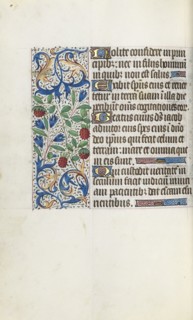 Nolite confidere in prin
cipib: nec in filiis hominum
in quib: non est salus
Exibit spūs eius et reuer
tetur in terrā suam in illa die
peribūt oīns cogitationes eorꝝ
Beatus cuius ds iacob
adiutor eius spes eius in dno
deo ipsius qui fecit celum et
terram: mare et omnia que
in eis sunt
Qui custodit ueritatē in
seculum facit iudiciū iniuri
am pacientib: dat escam esu
rientibus